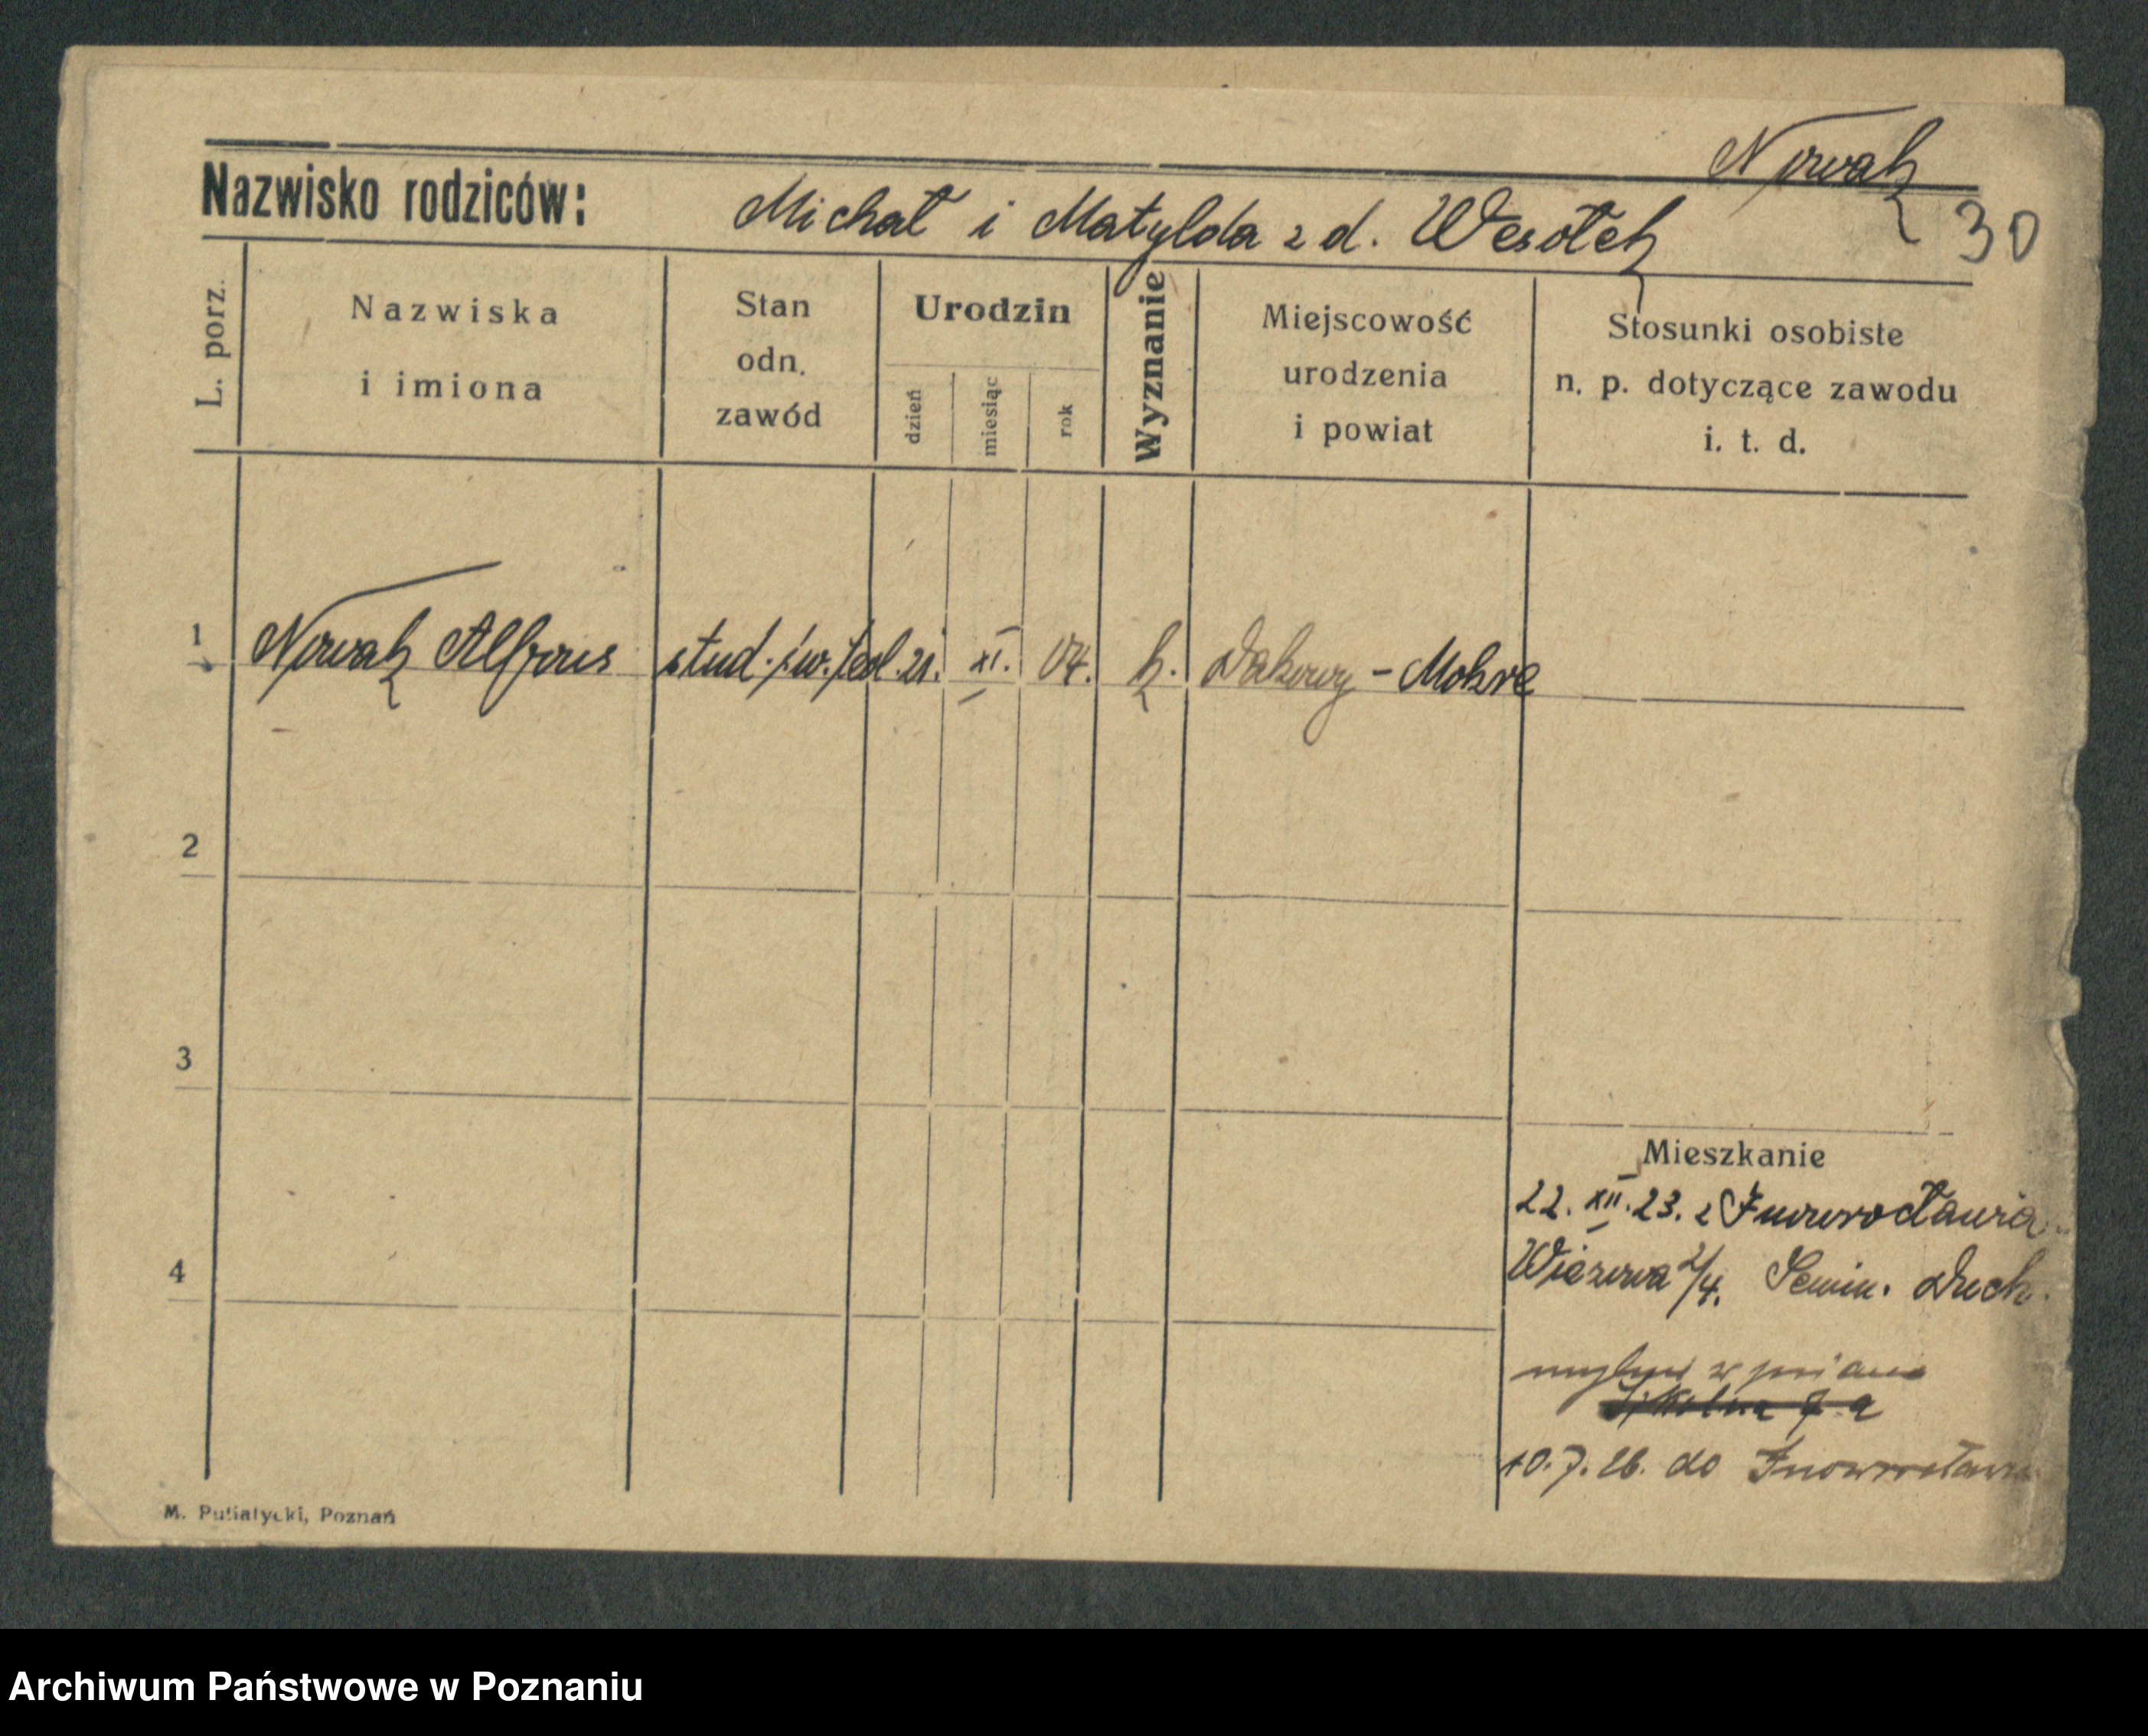 Nowak
Nazwisko rodziców: Michał i Matylda z d. Wesołek 30
L. porz.
Nazwiska
i imiona
Stan
odn.
zawód
Urodzin
dzień
miesiąc
rok
Wyznanie
Miejscowość
urodzenia
i powiat
Stosunki osobiste
n. p. dotyczące zawodu
i. t. d.
1 Nowak Alfons stud. św. teol. 21. XI. 04. k. Dakowy - Mokre
2
3
4
Mieszkanie
22. XII. 23. z Inowrocławia
Wieżowa 2/4. Semin. Duch.
mylnie wpisano
10. 7. 26. do Inowrocławia
M. Putiatycki, Poznań
Archiwum Państwowe w Poznaniu